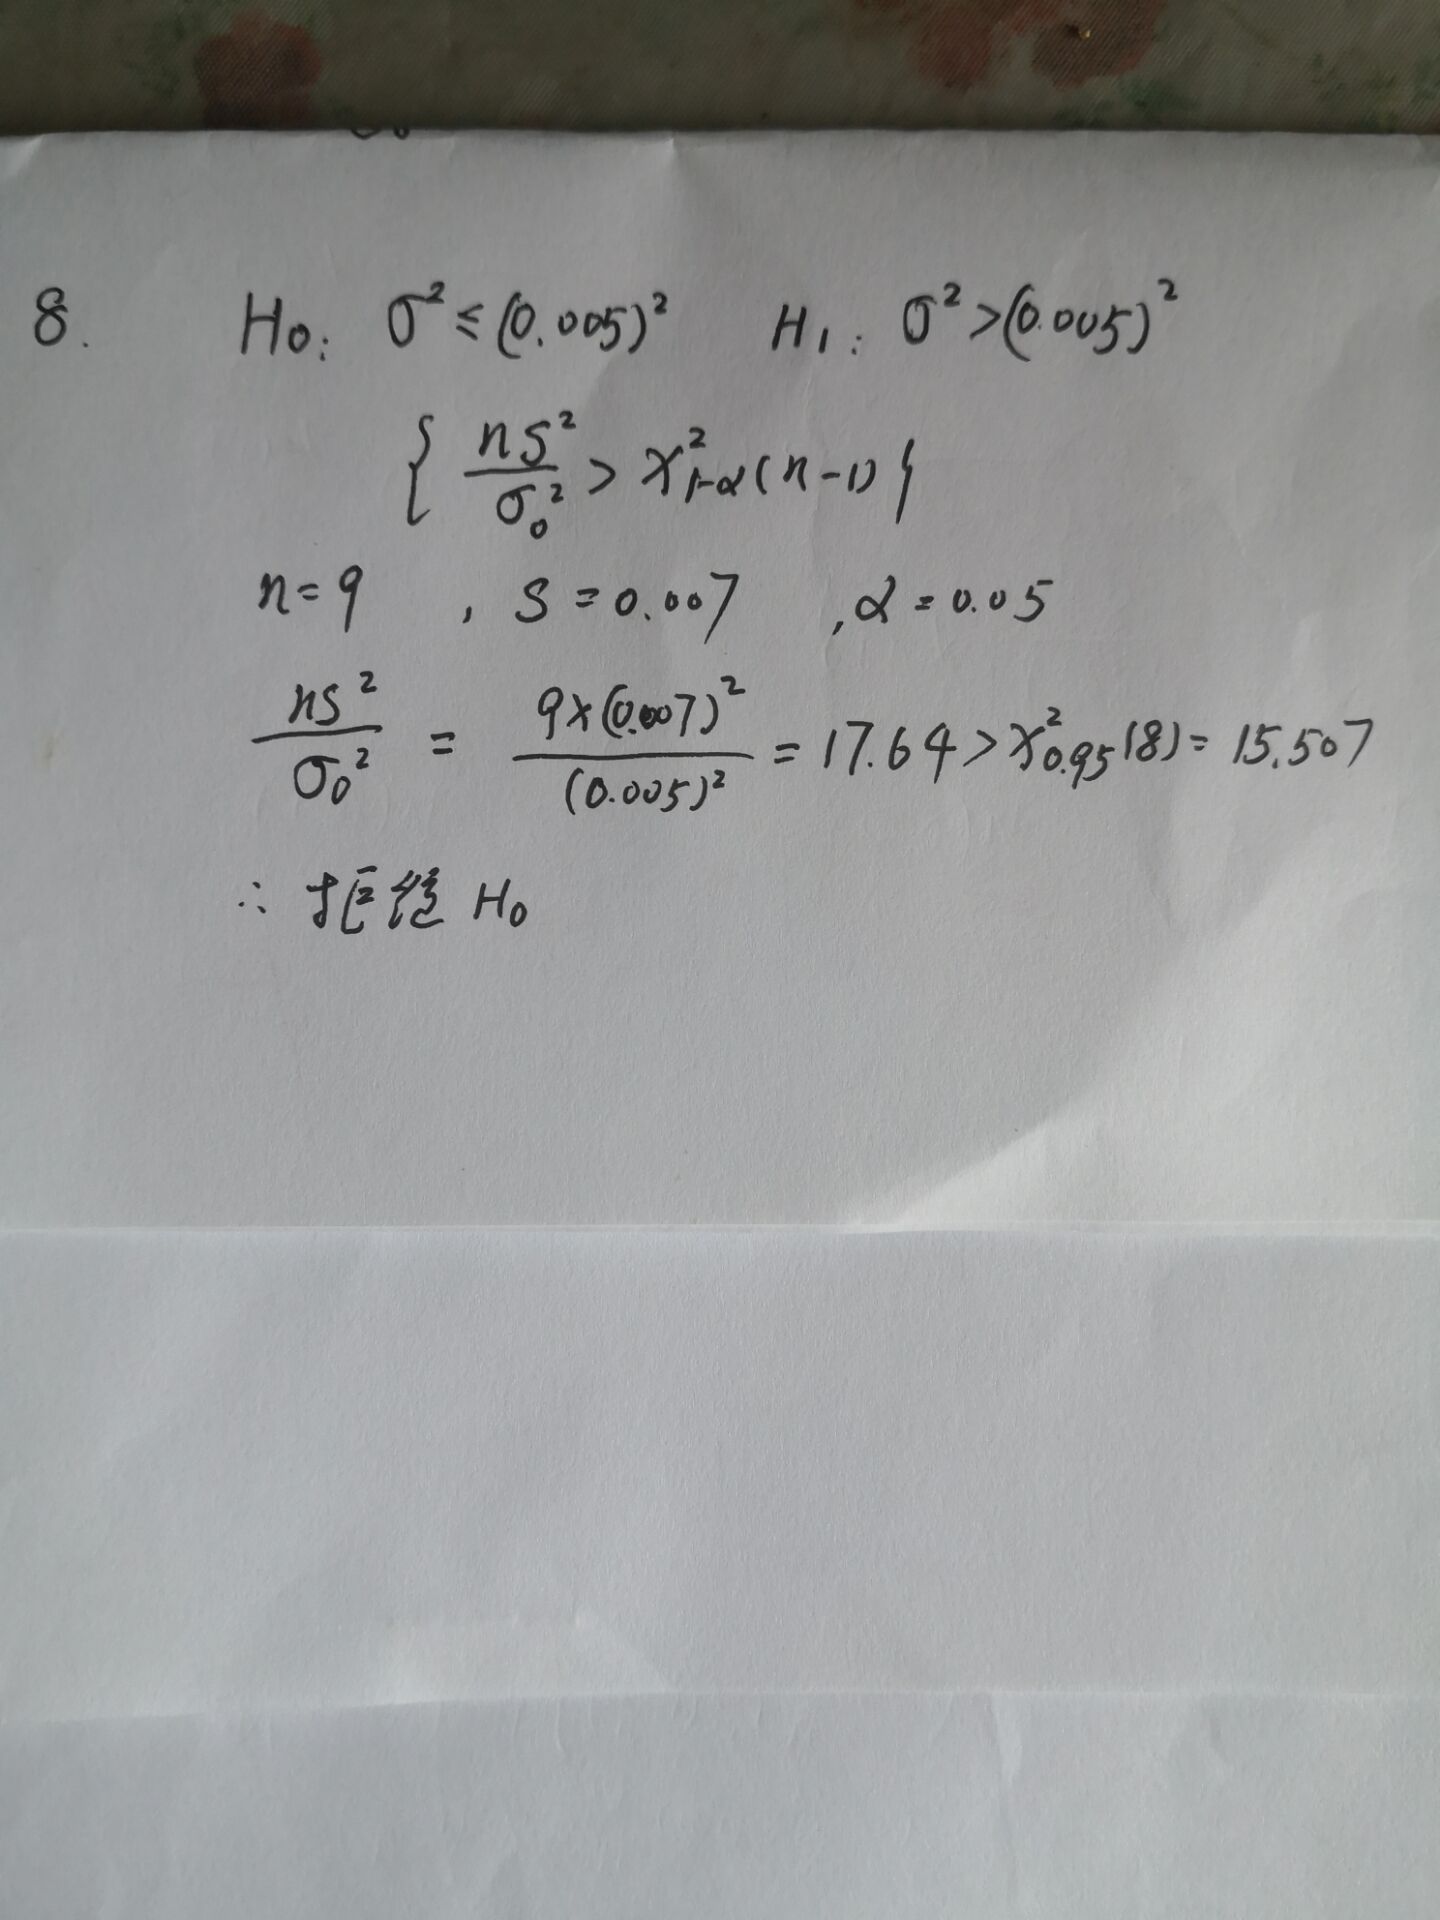 8. H₀: σ² ≤ (0.005)² H₁: σ² > (0.005)²
{ nS²/σ₀² > χ²₁₋α(n-1) }
n=9 , S=0.007 , α=0.05
nS²/σ₀² = 9×(0.007)²/(0.005)² = 17.64 > χ²₀.₉₅(8) = 15.507
∴ 拒绝 H₀